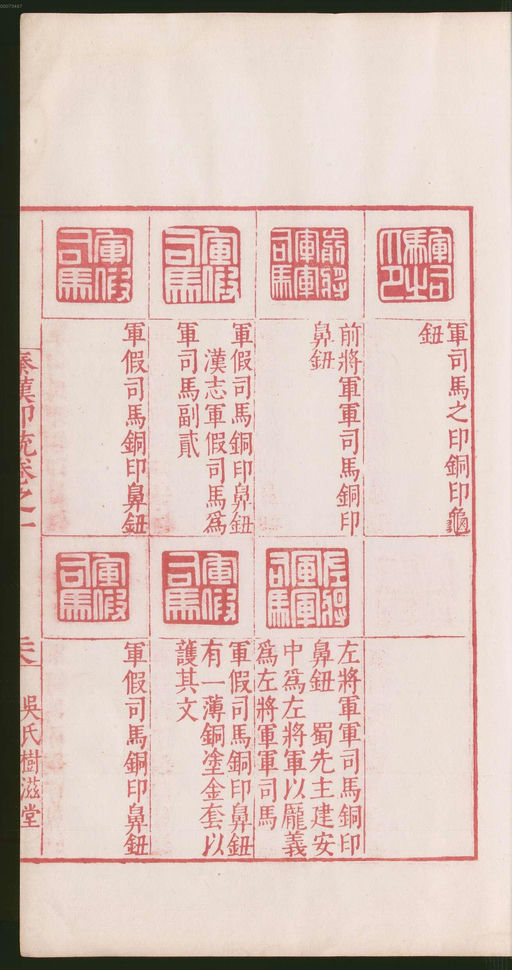 00073467
軍司馬之印
軍司馬之印銅印龜
鈕
前將軍軍司馬
前將軍軍司馬銅印
鼻鈕
軍假司馬
軍假司馬銅印鼻鈕
漢志軍假司馬爲
軍司馬副貳
軍假司馬
軍假司馬銅印鼻鈕
左將軍軍司馬
左將軍軍司馬銅印
鼻鈕 蜀先主建安
中爲左將軍以龐義
爲左將軍軍司馬
軍假司馬
軍假司馬銅印鼻鈕
有一薄銅塗金套以
護其文
軍假司馬
軍假司馬銅印鼻鈕
秦漢印統卷之一
吳氏樹滋堂